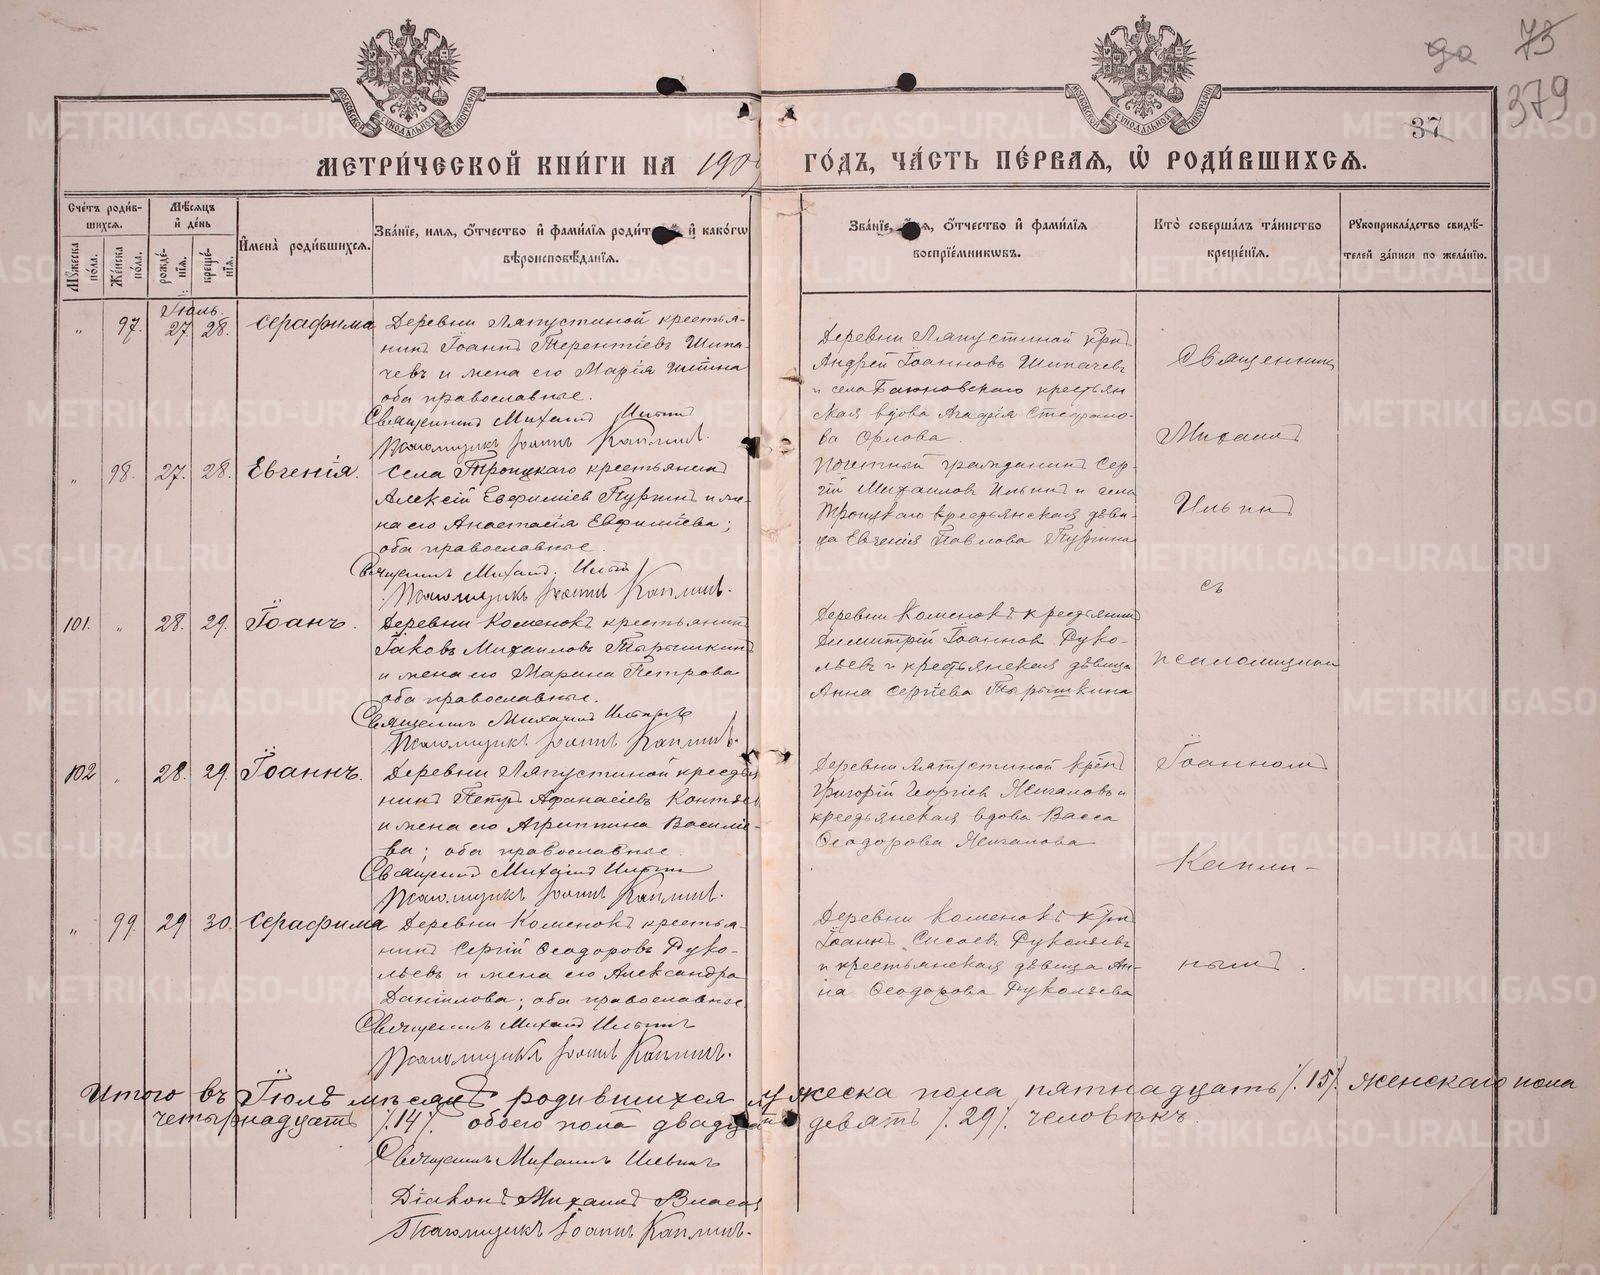 до 73
379
37
МОСКОВСКОЙ СѴНОДАЛЬНОЙ ТИПОГРАФІИ
МОСКОВСКОЙ СѴНОДАЛЬНОЙ ТИПОГРАФІИ
МЕТРИ́ЧЕСКОЙ КНИ́ГИ НА 190
ГО́ДЪ, ЧА́СТЬ ПЕ́РВАЯ, Ѡ҆ РОДИ́ВШИХСѦ.
Сче́тъ роди́вшихсѧ.
Мꙋжеска по́ла.
Же́нска по́ла.
Мѣ́сѧцъ и҆ де́нь
рожде́нїѧ.
креще́нїѧ.
И҆мена̀ роди́вшихсѧ.
Зва́нїе, и҆мѧ, ѻ҆́тчество и҆ фами́лїѧ роди́т й и҆ како́гѡ
вѣроисповѣ́данїѧ.
Зва́нїе, ѧ, ѻ҆́тчество и҆ фами́лїѧ
воспрїе́мникѡвъ.
Кто̀ соверша́лъ та́инство
креще́нїѧ.
Рꙋкоприкла́дство свидѣ́телей за́писи по жела́нїю.
Іюль.
" 97. 27 28. Серафима
Деревни Ляпустиной крестья-
нинъ Іоаннъ Терентіевъ Шипа-
чевъ и жена его Марія
оба православные.
Священникъ Михаилъ Ильинъ
Псаломщикъ Іоаннъ Каплинъ.
Деревни Ляпустиной крнъ
Андрей Іоанновъ Шипачевъ
и села Баюновскаго крестьян
ская вдова Агафія Стефано-
ва Орлова
" 98. 27. 28. Евгенія.
Села Троицкаго крестьянинъ
Алексій Евфиміевъ Пургинъ и же-
на его Анастасія Евфиміева;
оба православные.
Священникъ Михаилъ Ильинъ
Псаломщикъ Іоаннъ Каплинъ.
Почетный гражданинъ Сер-
гій Михаиловъ Ильинъ и села
Троицкаго крестьянская дѣви-
ца Евгенія Павлова Пургина
101. " 28. 29. Іоаннъ.
Деревни Коменокъ крестьянинъ
Іаковъ Михаиловъ Тырышкинъ
и жена его Марина Петрова
оба православные.
Священникъ Михаилъ Ильинъ
Псаломщикъ Іоаннъ Каплинъ.
Деревни Коменокъ крестьянинъ
Димитрій Іоанновъ Руко-
льевъ и крестьянская дѣвица
Анна Сергіева Тырышкина
102 " 28. 29. Іоаннъ.
Деревни Ляпустиной крестья
нинъ Петръ Афанасіевъ
и жена его Агриппина Василіе-
ва; оба православные.
Священникъ Михаилъ Ильинъ
Псаломщикъ Іоаннъ Каплинъ.
Деревни Ляпустиной крнъ
Григорій Георгіевъ и
крестьянская вдова Васса
Ѳеодорова
" 99. 29 30. Серафима
Деревни Коменокъ крестья-
нинъ Сергій Ѳеодоровъ Руко-
льевъ и жена его Александра
Даніилова; оба православные.
Священникъ Михаилъ Ильинъ
Псаломщикъ Іоаннъ Каплинъ.
Деревни Коменокъ крнъ
Іоаннъ Сисоевъ Рукольевъ
и крестьянская дѣвица Ан-
на Ѳеодорова Рукольева
Священникъ
Михаилъ
Ильинъ
съ
псаломщикомъ
Іоанномъ
Капли-
нымъ.
Итого въ Іюлѣ мѣсяцѣ родившихся мужеска пола пятнадцать /.15/. женскаго пола
четырнадцать /.14/. обоего пола двадцать девять /.29/. человѣкъ.
Священникъ Михаилъ Ильинъ
Діаконъ Михаилъ
Псаломщикъ Іоаннъ Каплинъ.
METRIKI.GASO-URAL.RU